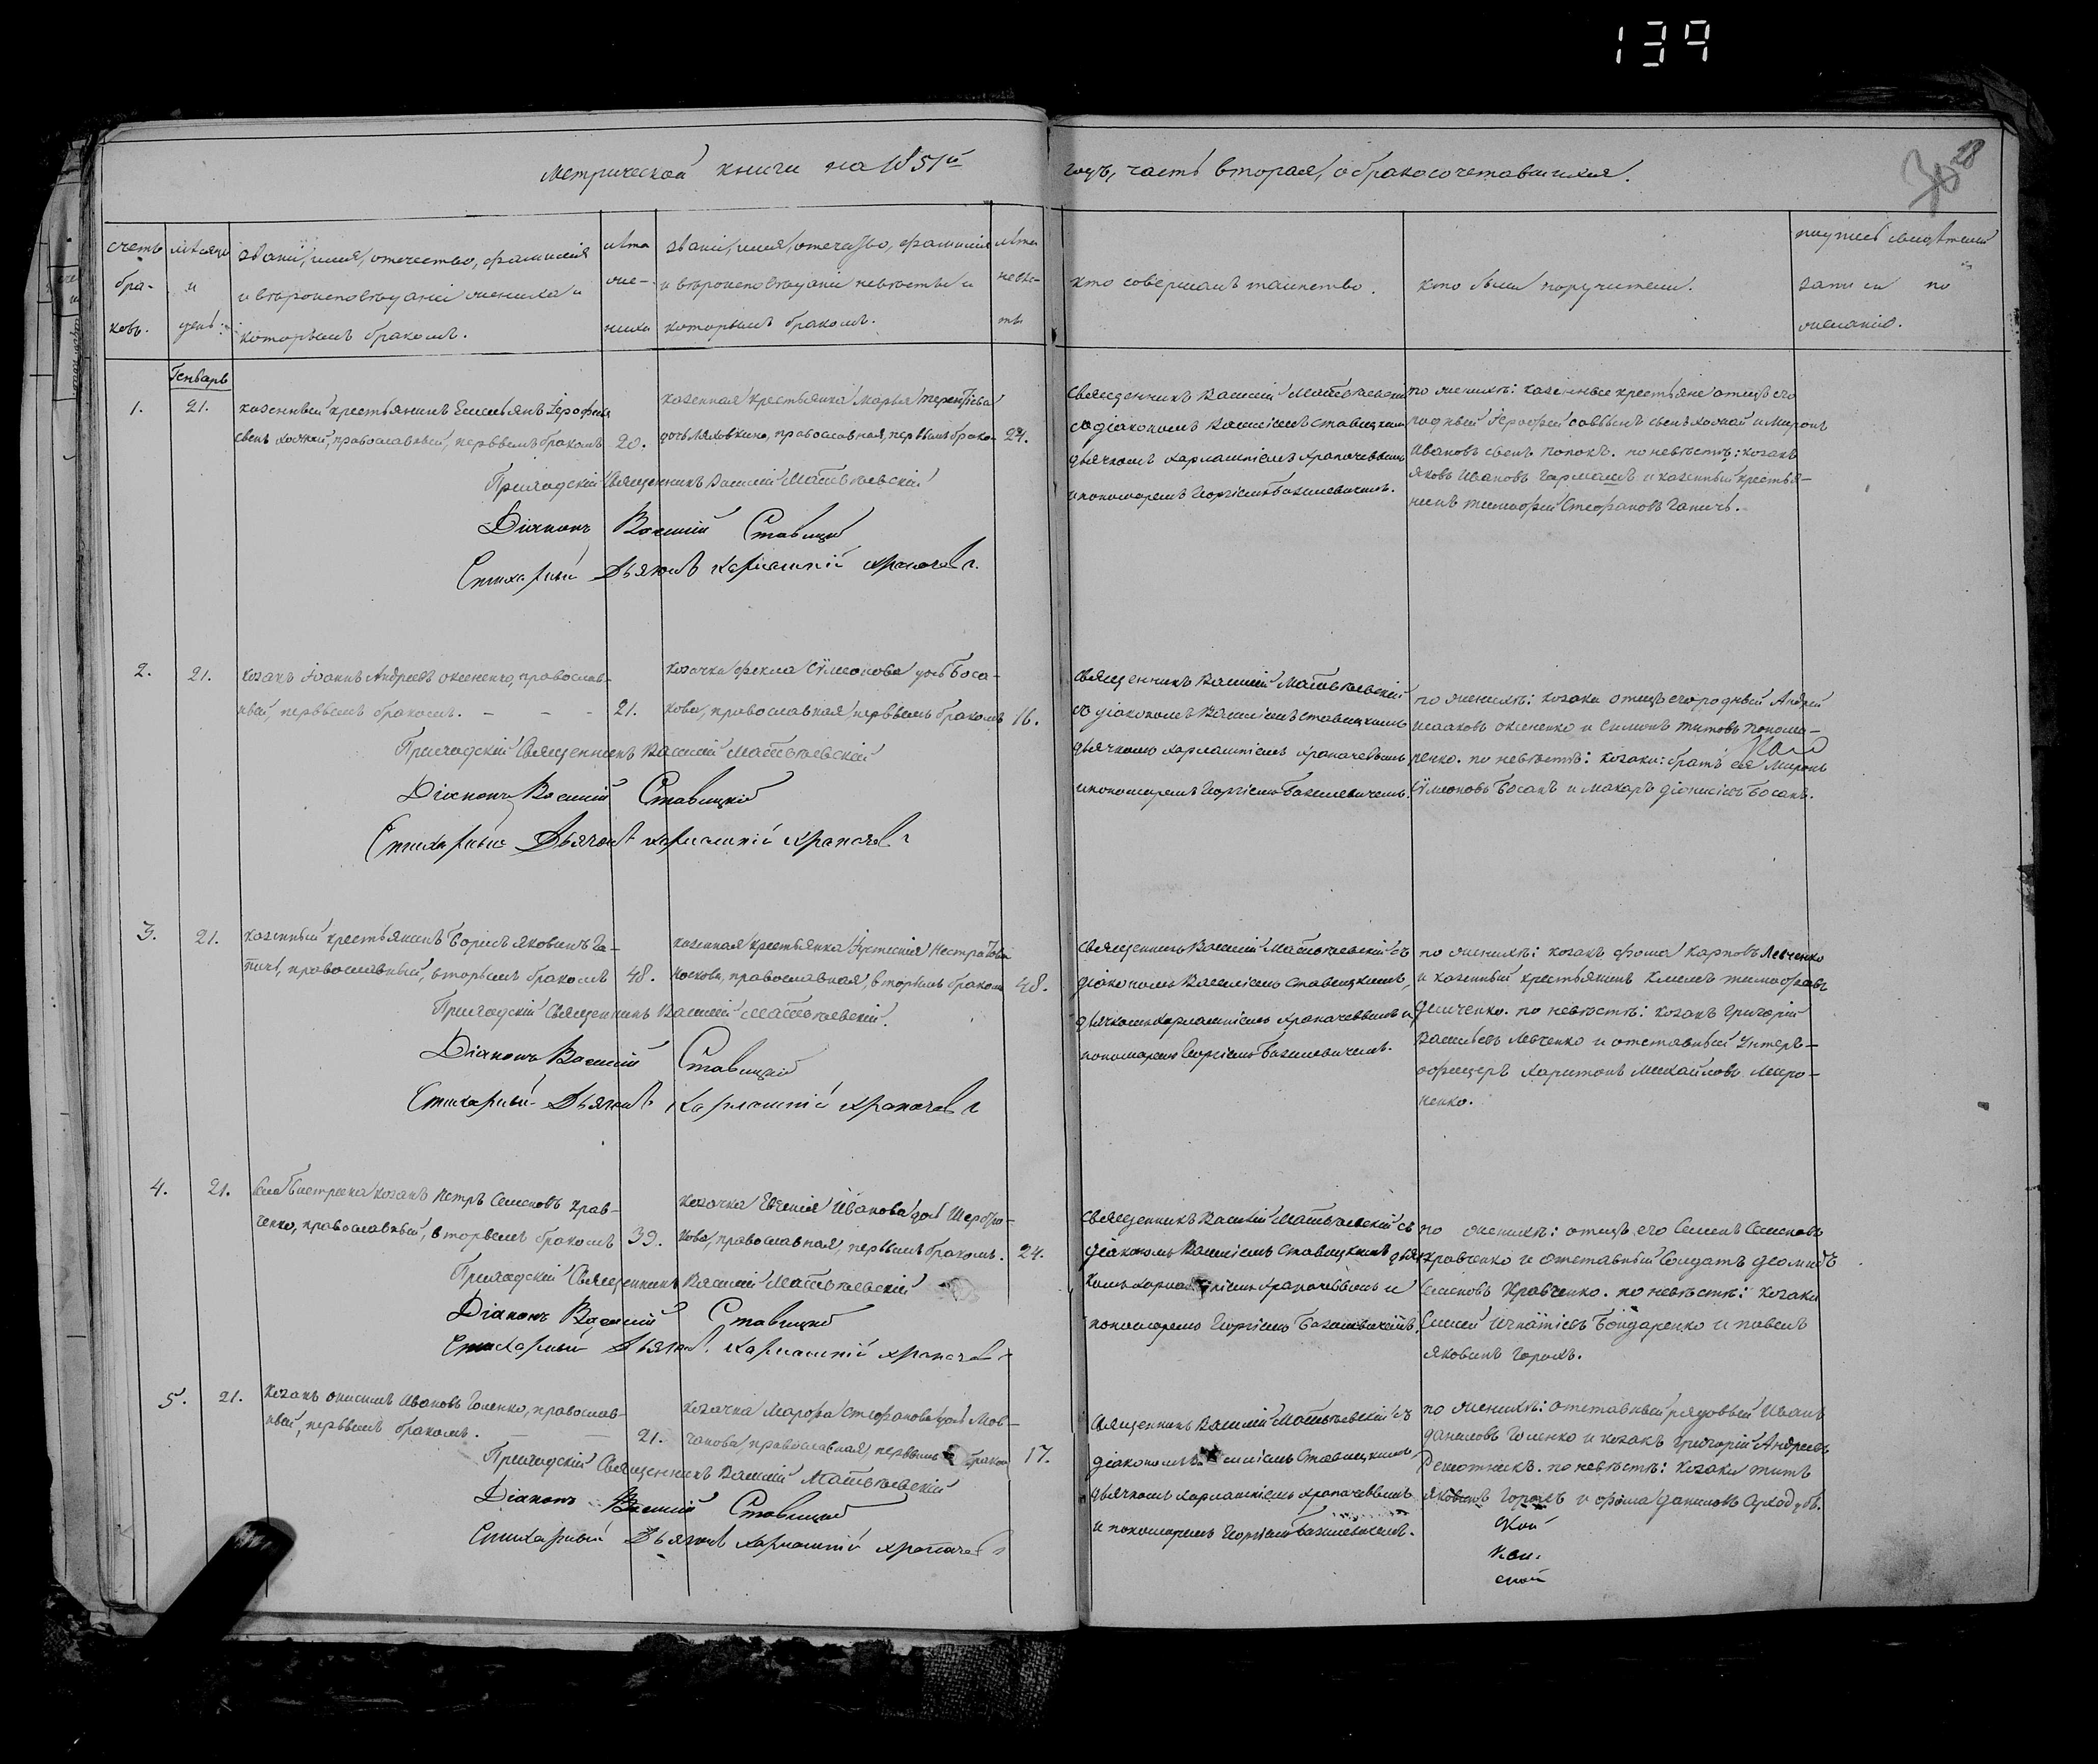 139
28
Метрической книги на 1851й годъ, часть вторая, о бракосочетавшихся.
счетъ бра- ковъ.
мѣсяцъ и день.
званіе, имя, отечество, фамилія
и вѣроисповѣданіе жениха и
которымъ бракомъ.
лѣта
же-
ниха
званіе, имя, отечество, фамилія
и вѣроисповѣданіе невѣсты и
которымъ бракомъ.
лѣта
невѣ-
сты
кто совершалъ таинство.
кто были поручители.
подпись свидѣтелей
записи по
желанію.
Генварь
1. 21.
казенный крестьянинъ Емельянъ Ерофѣе
православный, первымъ бракомъ 20.
казенная крестьянка Марья Терентіева
дочь Ляховкина, православная, первымъ брако 24.
священникъ Василій Матвѣевскій
съ діакономъ Василіемъ Ставицкимъ
дьячкомъ Харлампіемъ Храпачевымъ
и пономаремъ Георгіемъ Базилевичемъ.
по женихѣ: казенные крестьяне отецъ его
родный Ерофѣй Саввинъ сынъ и Миронъ
Ивановъ сынъ Попокъ. по невѣстѣ: козакъ
Яковъ Ивановъ Гармашъ и казенный крестья-
нинъ Тимофей Стефановъ Гапичъ.
Приходскій Священникъ Василій Матвѣевскій
Діаконъ Василій Ставицкій
Стихарный Дьячокъ Харлампій Храпачевъ
2. 21.
козакъ Іоаннъ Андреевъ Оксененко, православ-
ный, первымъ бракомъ. - - - 21.
козачка Фекла Сѵмеонова дочь Боса-
кова, православная, первымъ бракомъ 16.
священникъ Василій Матвѣевскій
съ діакономъ Василіемъ Ставицкимъ
дьячкомъ Харлампіемъ Храпачевымъ
и пономаремъ Георгіемъ Базилевичемъ.
по женихѣ: козаки отецъ его родный Андрей
Исааковъ Оксененко и Симонъ Титовъ Понома-
ренко. по невѣстѣ: козаки: братъ ея Миронъ
Сѵмеоновъ Босакъ и Макаръ Діонисіевъ Босакъ.
Приходскій Священникъ Василій Матвѣевскій
Діаконъ Василій Ставицкій
Стихарный Дьячокъ Харлампій Храпачевъ
3. 21.
казенный крестьянинъ Борисъ Яковинъ Га-
пичъ, православный, вторымъ бракомъ 48.
казенная крестьянка Іустинія Нестратова
Носкова, православная, вторымъ бракомъ 48.
священникъ Василій Матвѣевскій съ
діакономъ Василіемъ Ставицкимъ,
дьячкомъ Харлампіемъ Храпачевымъ и
пономаремъ Георгіемъ Базилевичемъ.
по женихѣ: козакъ Фома Карповъ Левченко
и казенный крестьянинъ Климъ Тимофѣевъ
Демченко. по невѣстѣ: козакъ Григорій
Васильевъ Левченко и отставный Унтеръ-
офицеръ Харитонъ Михайловъ Миро-
ненко.
Приходскій Священникъ Василій Матвѣевскій.
Діаконъ Василій Ставицкій
Стихарный Дьячокъ Харлампій Храпачевъ
4. 21.
козакъ Петръ Семеновъ Крав-
ченко, православный, вторымъ бракомъ 39.
козачка Евгенія Иванова дочь Щербо-
кова, православная, первымъ бракомъ. 24.
священникъ Василій Матвѣевскій съ
діакономъ Василіемъ Ставицкимъ дьяч-
комъ Харлампіемъ Храпачевымъ и
пономаремъ Георгіемъ Базилевичемъ.
по женихѣ: отецъ его Семенъ Семеновъ
Кравченко и отставный солдатъ Діомидъ
Семеновъ Кравченко. по невѣстѣ: козаки
Емелей Игнатіевъ Бондаренко и Павелъ
Яковинъ Горохъ.
Приходскій Священникъ Василій Матвѣевскій
Діаконъ Василій Ставицкій
Стихарный Дьячокъ Харлампій Храпачевъ
5. 21.
козакъ Онисимъ Ивановъ Голенко, православ-
ный, первымъ бракомъ. - - 21.
козачка Марфа Стефанова дочь Мов-
чанова православная, первымъ бракомъ 17.
священникъ Василій Матвѣевскій съ
діакономъ Василіемъ Ставицкимъ,
дьячкомъ Харлампіемъ Храпачевымъ
и пономаремъ Георгіемъ Базилевичемъ.
по женихѣ: отставный рядовый Иванъ
Даниловъ Голенко и козакъ Григорій Андреевъ
Решотникъ. по невѣстѣ: козаки Титъ
Яковинъ Горохъ и Фома Даниловъ
Приходскій Священникъ Василій Матвѣевскій
Діаконъ Василій Ставицкій
Стихарный Дьячокъ Харлампій Храпачевъ